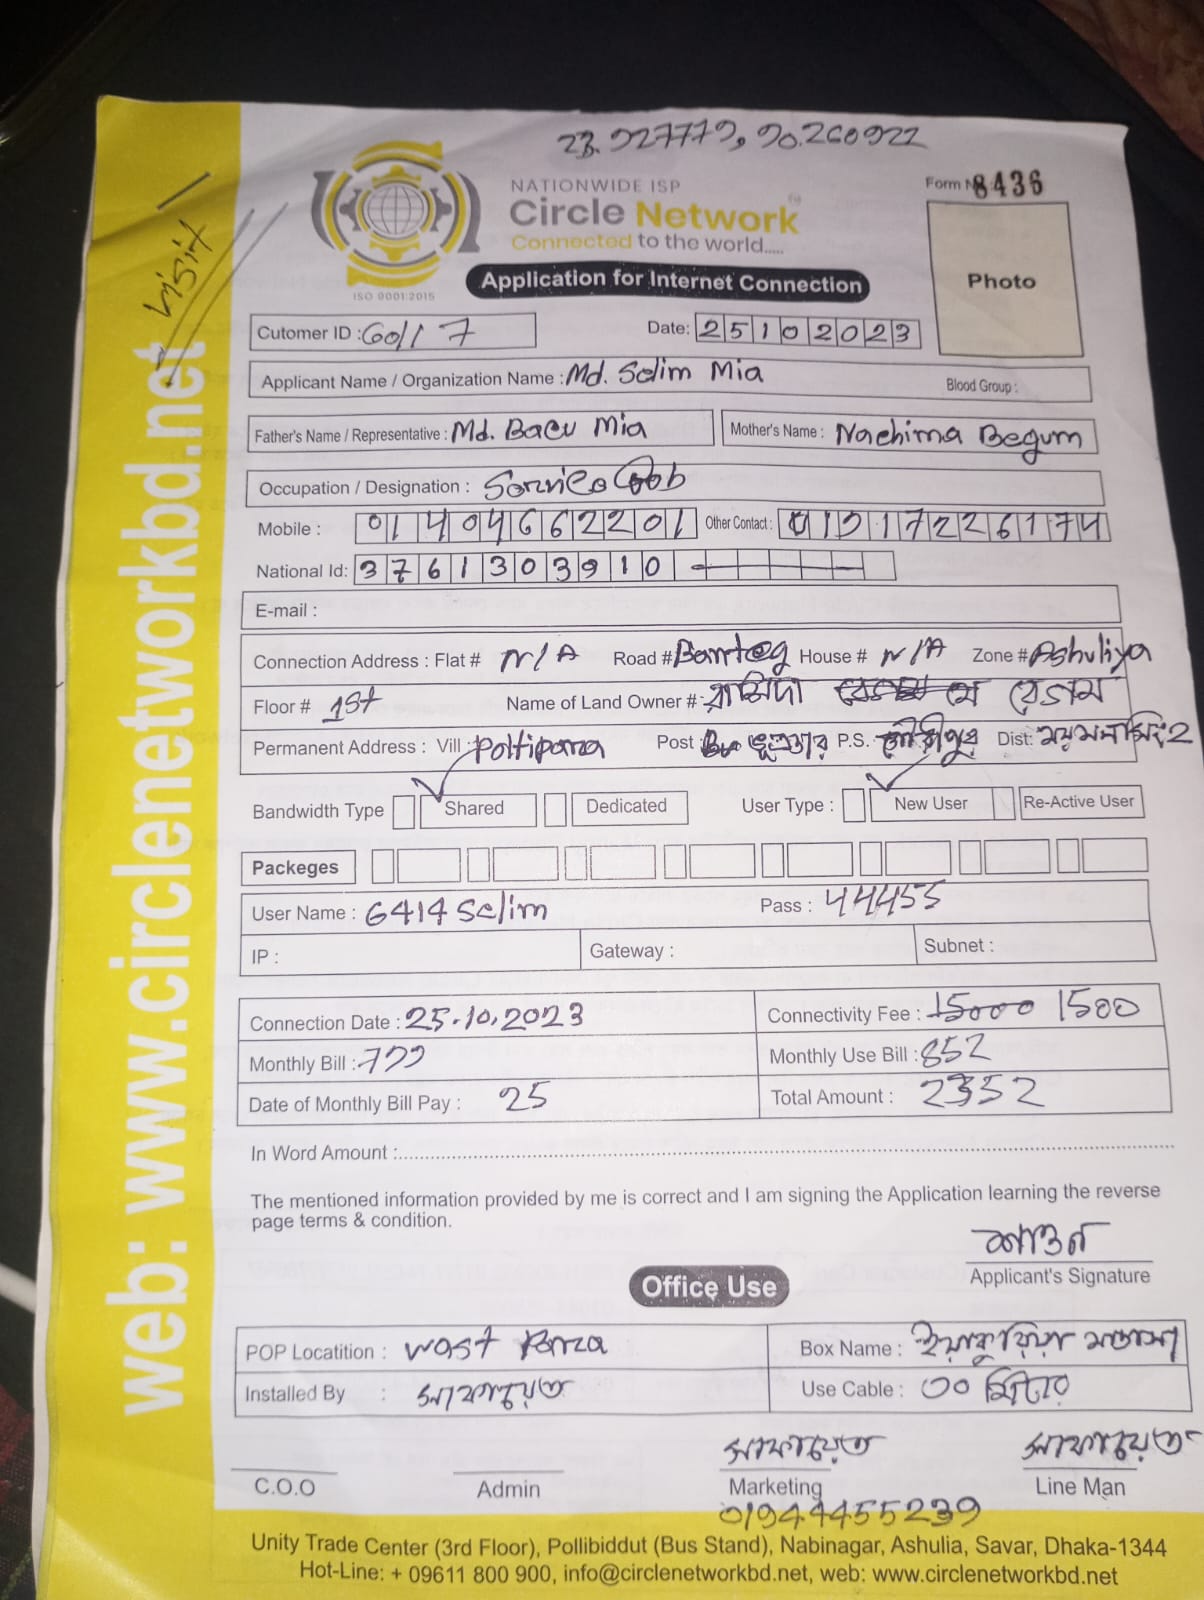 23.927779, 90.260922
NATIONWIDE ISP
Circle Network
Connected to the world.....
ISO 9001:2015
Form № 8436
Photo
visit
Application for Internet Connection
Cutomer ID : Goll 7
Date: 25102023
Applicant Name / Organization Name : Md. Selim Mia Blood Group :
Father's Name / Representative : Md. Bacu Mia Mother's Name : Nachima Begum
Occupation / Designation : Service Job
Mobile : 01404662201 Other Contact : 01917226174
National Id: 3761303910
E-mail :
Connection Address : Flat # N/A Road # Bamteg House # N/A Zone # Ashuliya
Floor # 1st Name of Land Owner # বেগম
Permanent Address : Vill : Poltipara Post P.S. Dist: ময়মনসিংহ
Bandwidth Type Shared Dedicated User Type : New User Re-Active User
Packeges
User Name : 6414selim Pass : 44455
IP : Gateway : Subnet :
Connection Date : 25.10.2023 Connectivity Fee : 15000 1500
Monthly Bill : 799 Monthly Use Bill : 852
Date of Monthly Bill Pay : 25 Total Amount : 2352
In Word Amount :
The mentioned information provided by me is correct and I am signing the Application learning the reverse
page terms & condition.
Applicant's Signature
Office Use
POP Locatition : West Parza Box Name :
Installed By : সাফায়েত Use Cable : ৩০ মিটার
সাফায়েত সাফায়েত
C.O.O Admin Marketing Line Man
01944455239
Unity Trade Center (3rd Floor), Pollibiddut (Bus Stand), Nabinagar, Ashulia, Savar, Dhaka-1344
Hot-Line: + 09611 800 900, info@circlenetworkbd.net, web: www.circlenetworkbd.net
web: www.circlenetworkbd.net